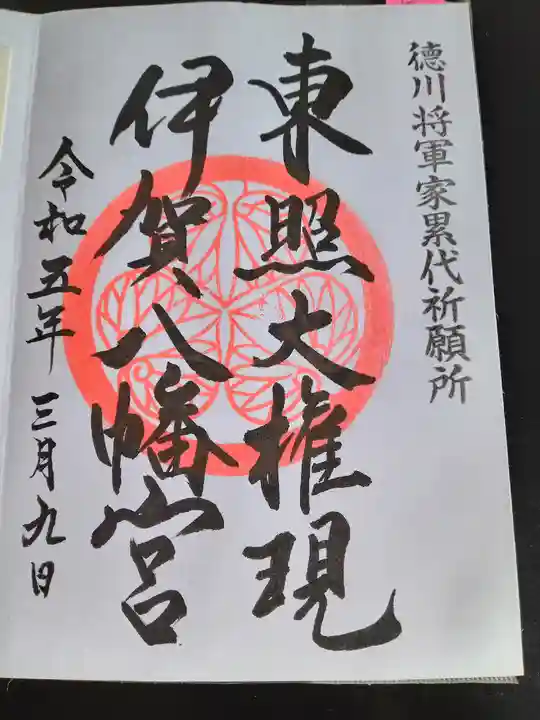 徳川将軍家累代祈願所
東照大権現
伊賀八幡宮
令和五年 三月九日